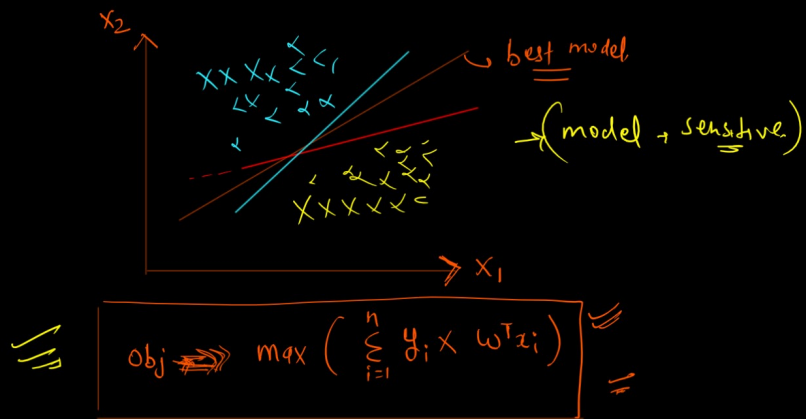 X2
best model
(model + sensitive)
X1
obj ⇒ max ( n Σ i=1 yi × wᵀxi )